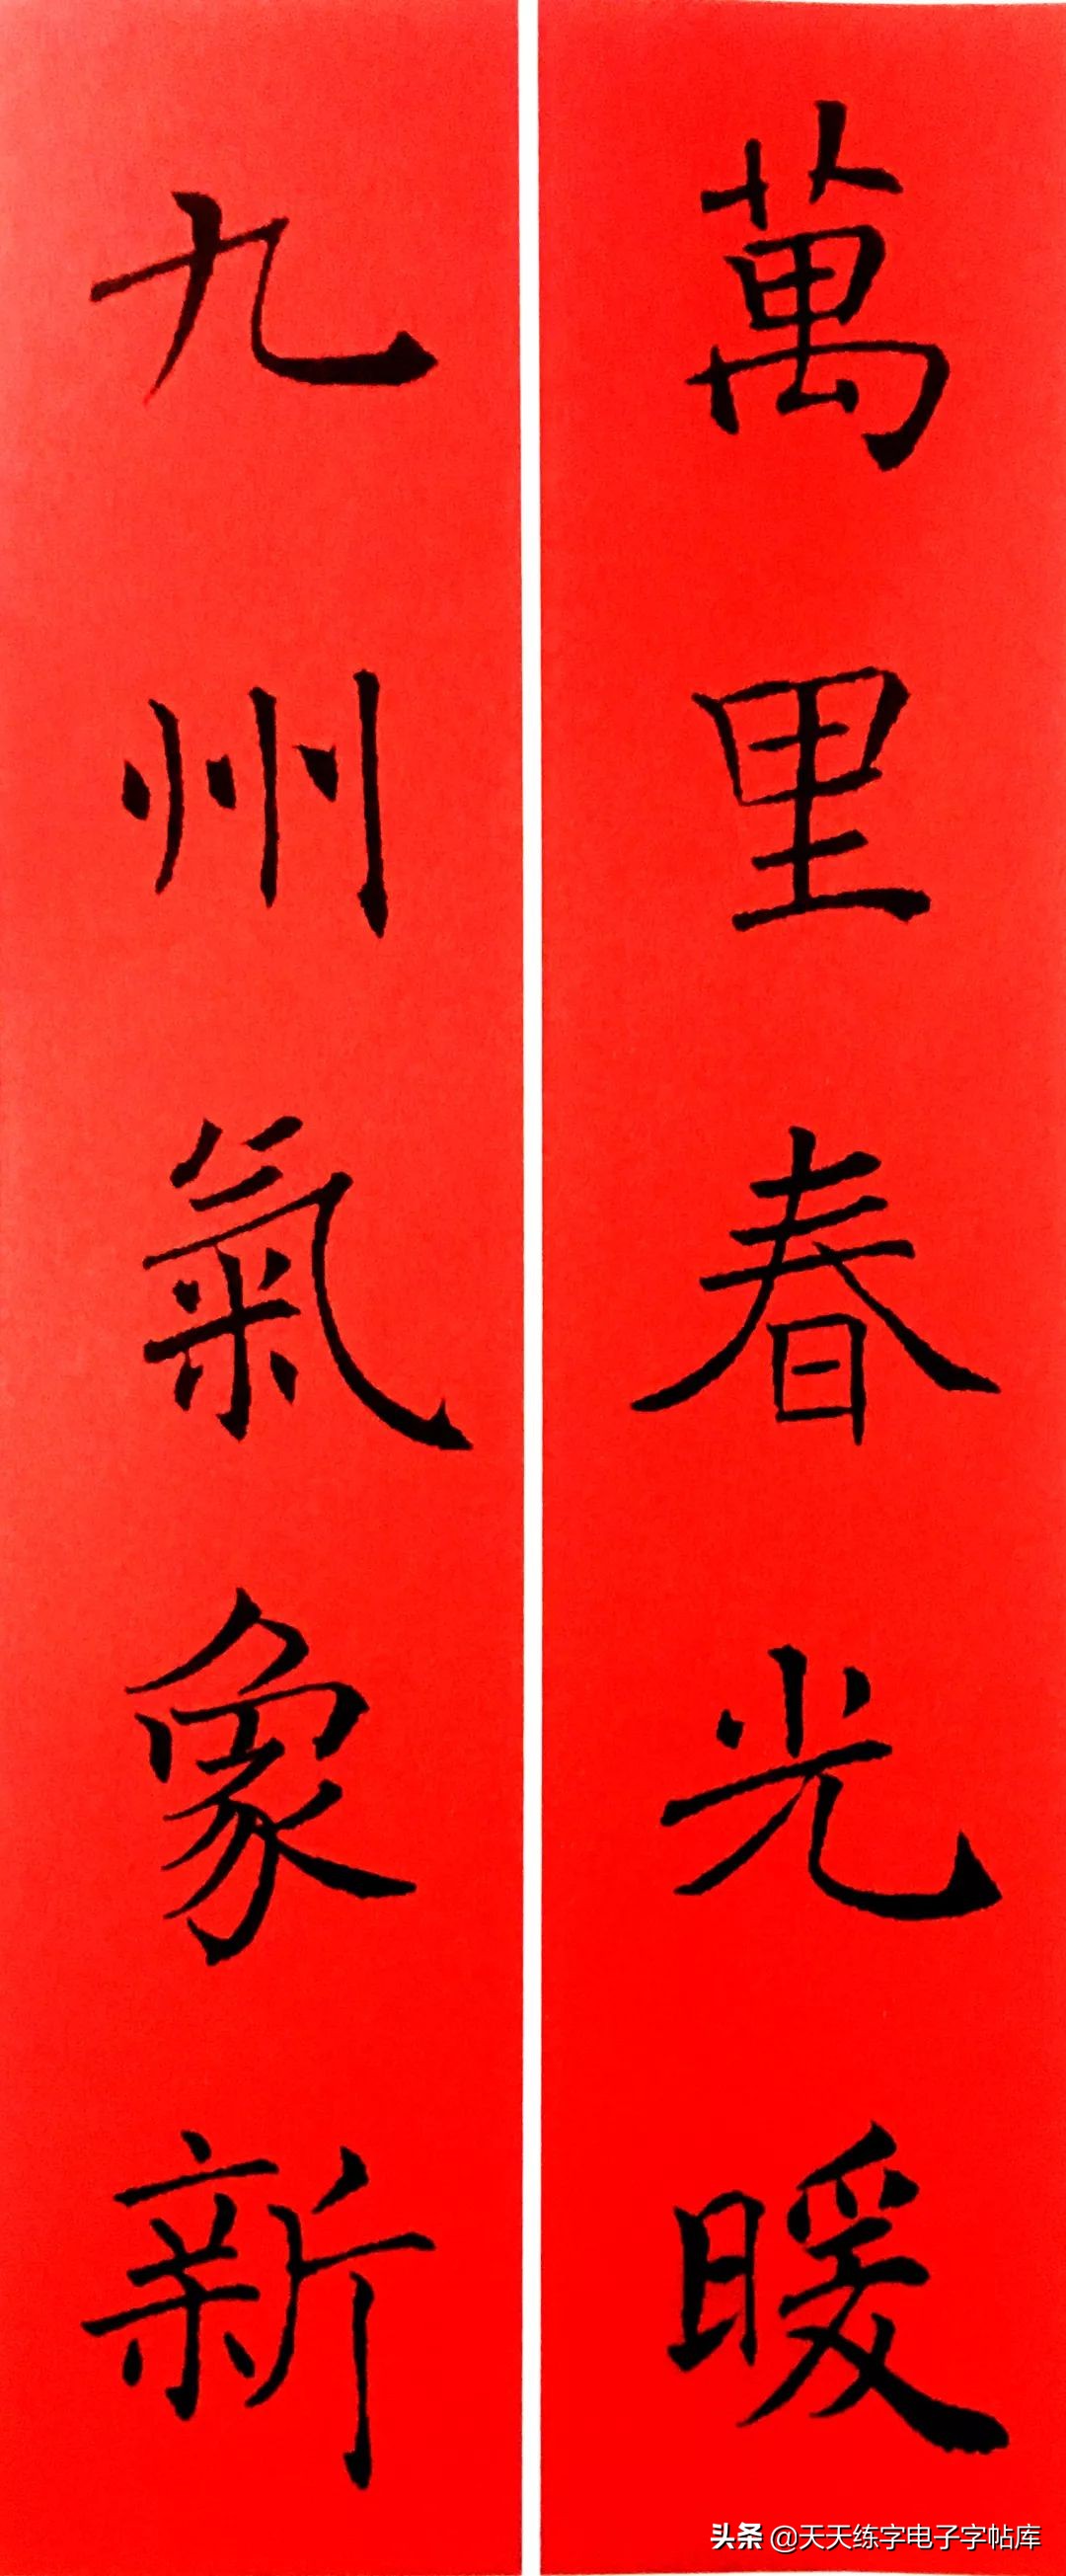 萬里春光暖
九州氣象新
头条 @天天练字电子字帖库